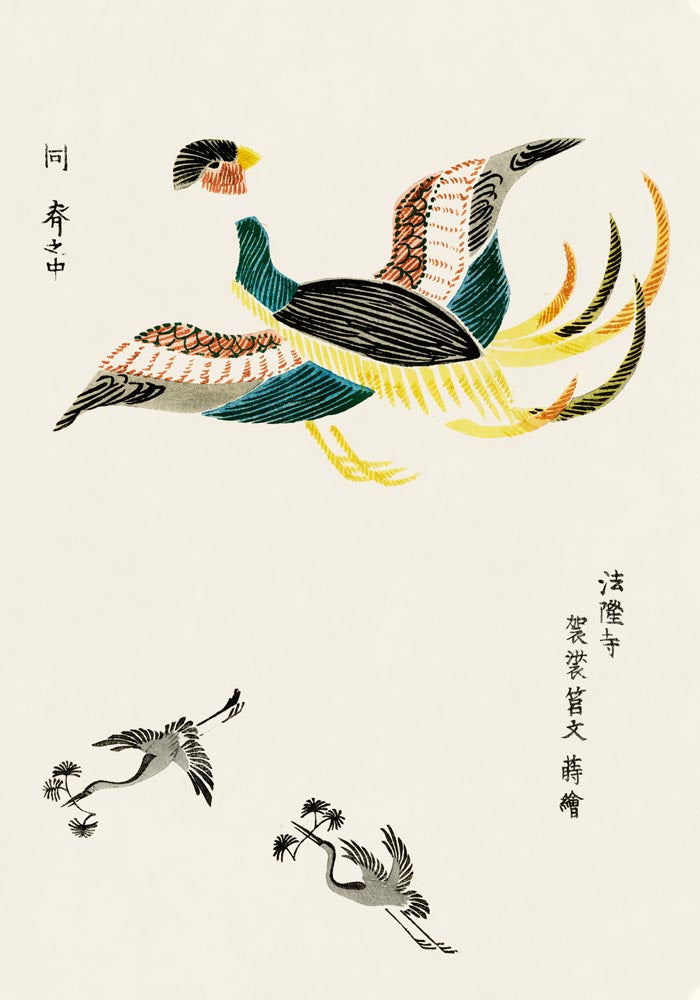 同 之中
法隆寺
袈裟筥文 蒔繪